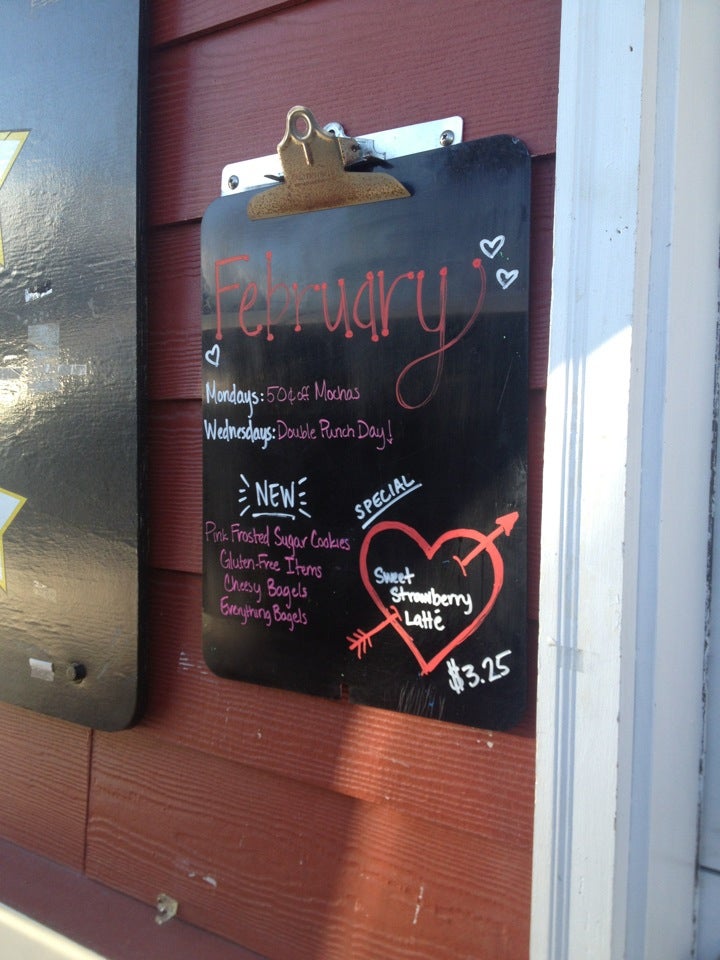 February
Mondays: 50¢ off Mochas
Wednesdays: Double Punch Day!
NEW
Pink Frosted Sugar Cookies
Gluten-Free Items
Cheesy Bagels
Everything Bagels
SPECIAL
Sweet
Strawberry
Latté
$3.25